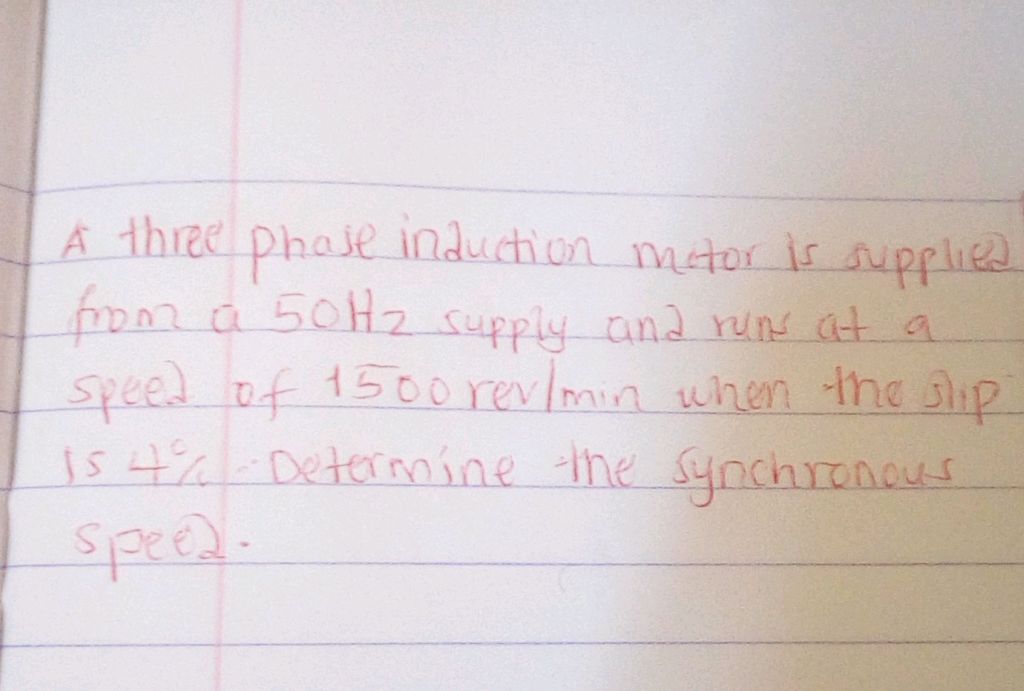 A three phase induction motor is supplied
from a 50Hz supply and runs at a
speed of 1500rev/min when the slip
is 4%. Determine the synchronous
speed.